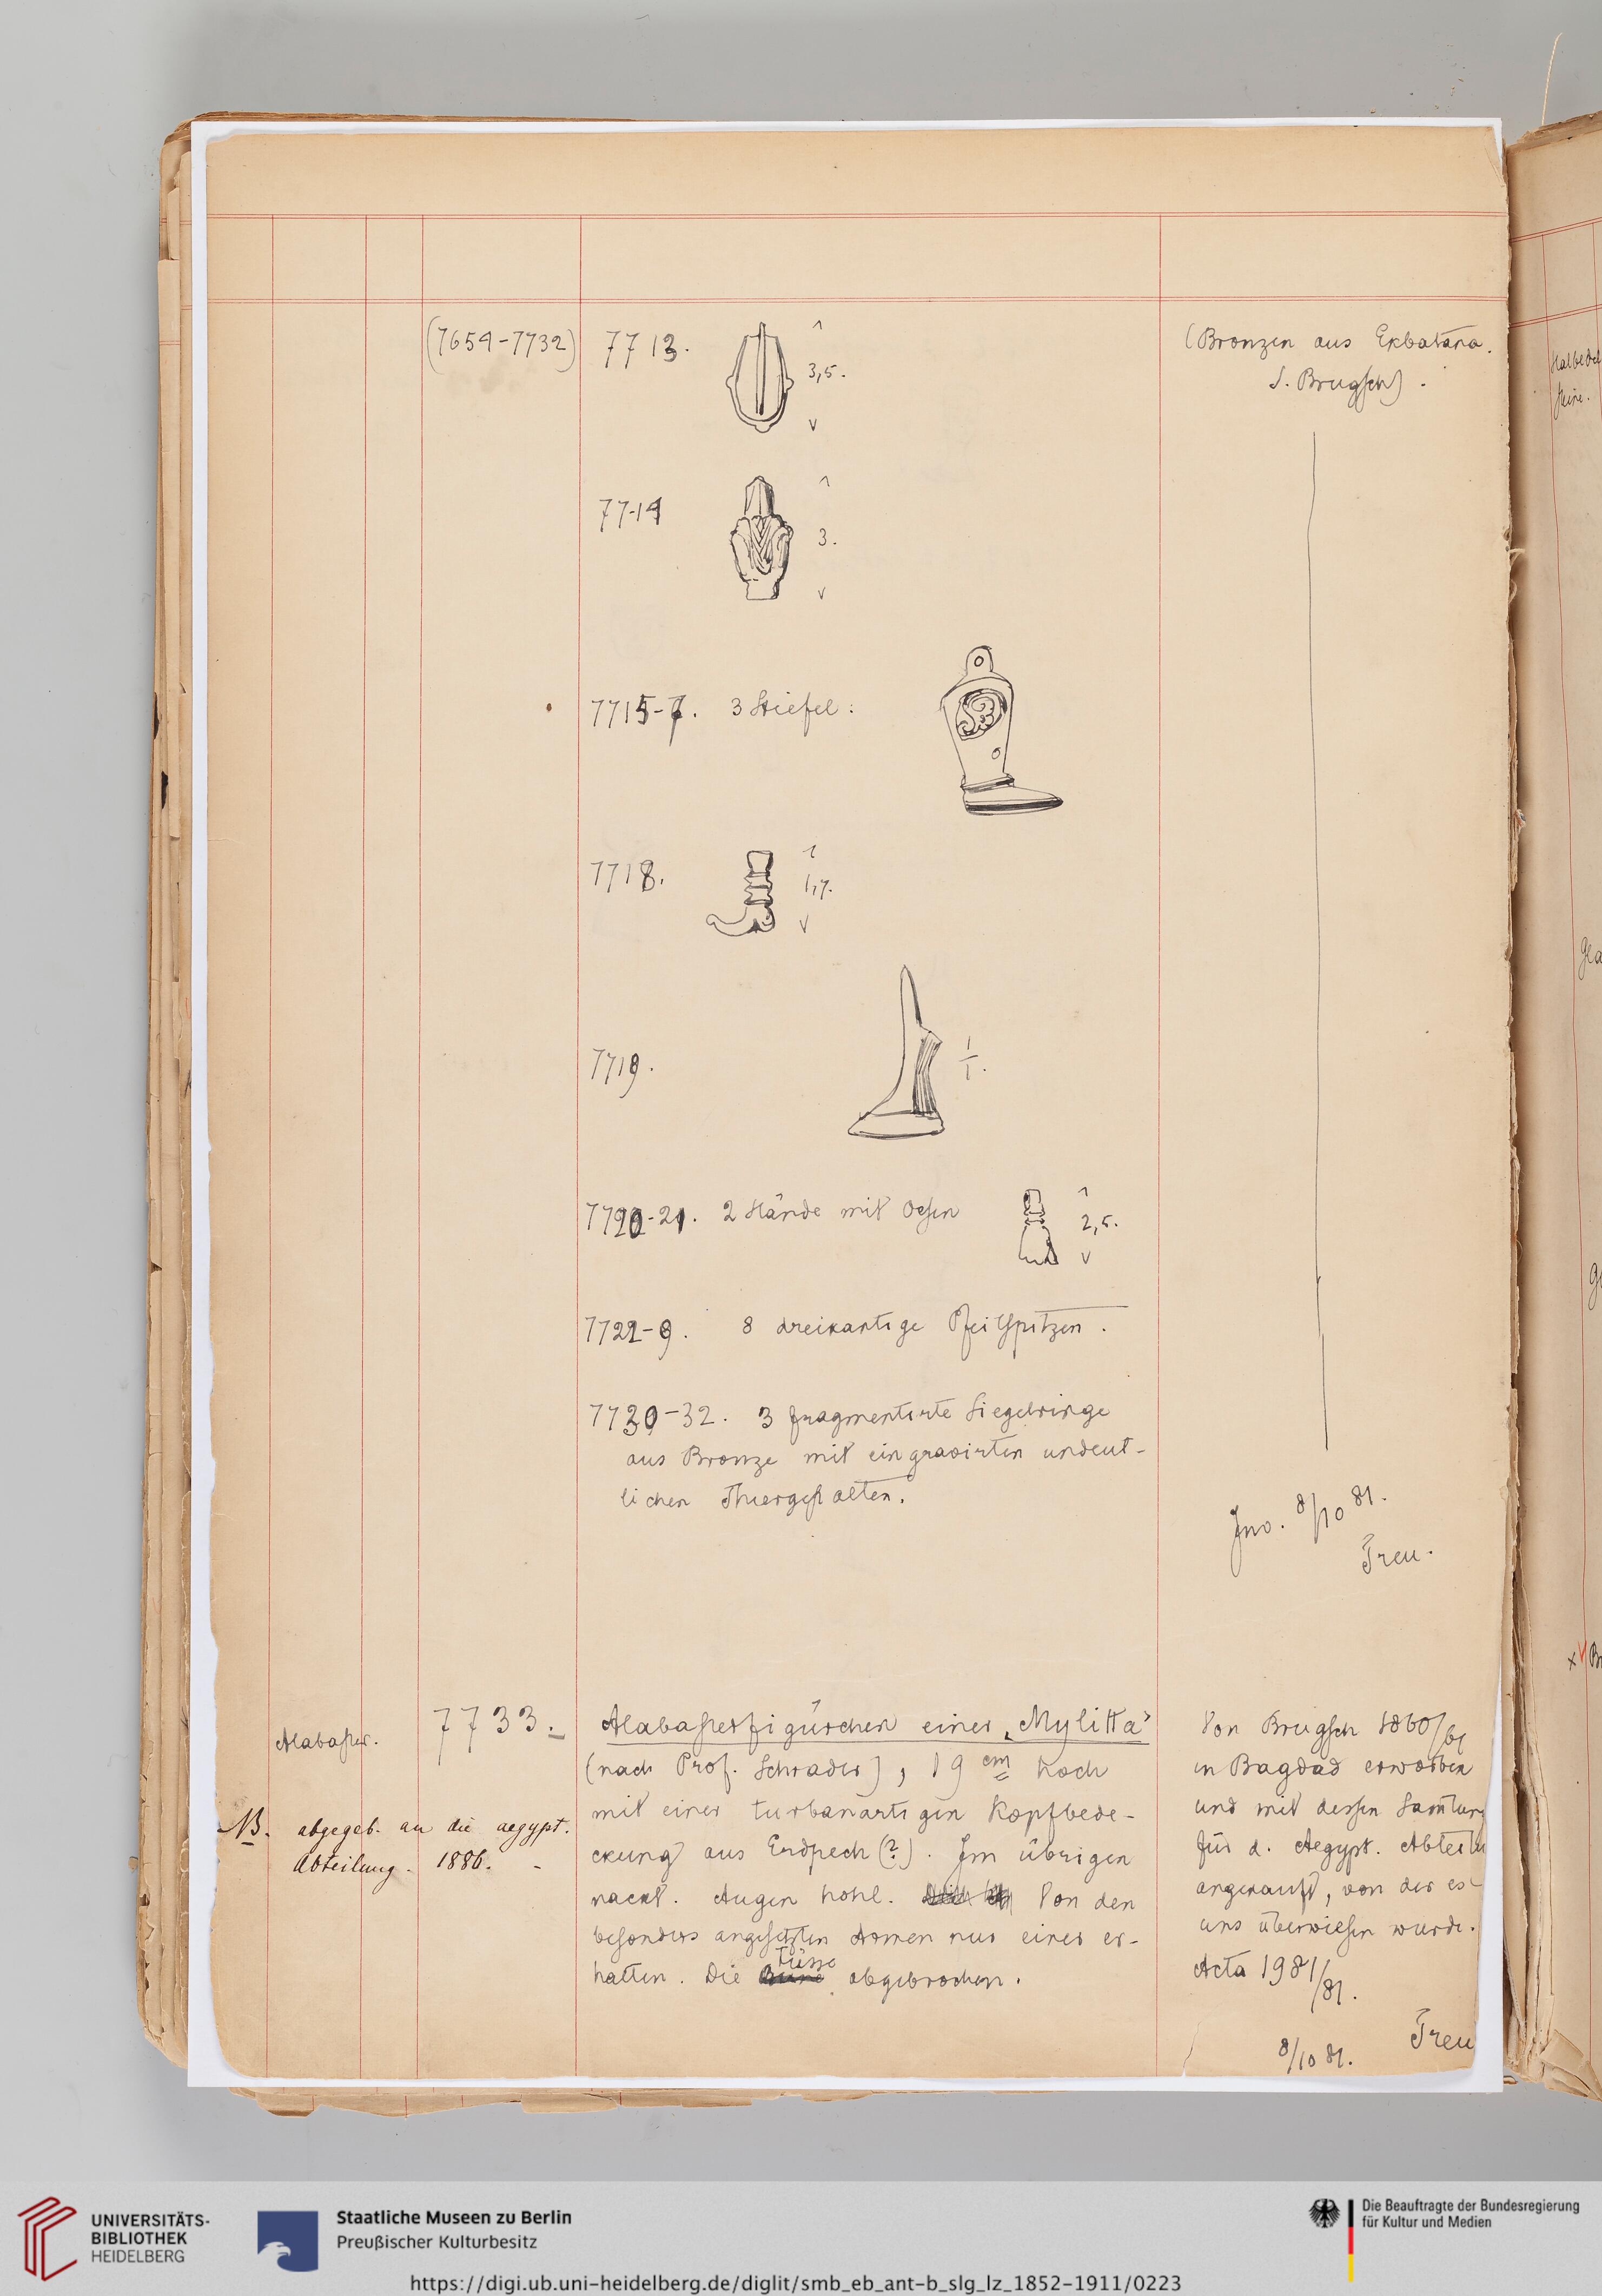 (7654-7732)
7713.
3,5.
(Bronzen aus Ekbatana.
S. Brugsch).
7714
3.
7715-7. 3 Stiefel:
7718.
1,7.
7719.
1/1.
7720-21. 2 Hände mit Oesen
2,5.
7722-9. 8 dreikantige Pfeilspitzen.
7730-32. 3 fragmentirte Siegelringe
aus Bronze mit eingravirten undeut-
lichen Thiergestalten.
Inv. 8/10 81.
Treu.
Alabaster.
7733.
Alabasterfigürchen einer „Mylitta"
(nach Prof. Schrader), 19 cm hoch
mit einer turbanartigen Kopfbede-
ckung aus Erdpech (?). Im übrigen
nackt. Augen hohl. Von den
besonders angesetzten Armen nur einer er-
halten. Die Füsse abgebrochen.
NB. abgegeb. an die aegypt.
Abteilung. 1886. -
Von Brugsch 1860/61
in Bagdad erworben
und mit dessen Samlung
für d. Aegypt. Abteilu
angekauft, von der es
uns überwiesen wurde.
Acta 1981/81.
8/10 81.
Treu
UNIVERSITÄTS-
BIBLIOTHEK
HEIDELBERG
Staatliche Museen zu Berlin
Preußischer Kulturbesitz
Die Beauftragte der Bundesregierung
für Kultur und Medien
https://digi.ub.uni-heidelberg.de/diglit/smb_eb_ant-b_slg_lz_1852-1911/0223